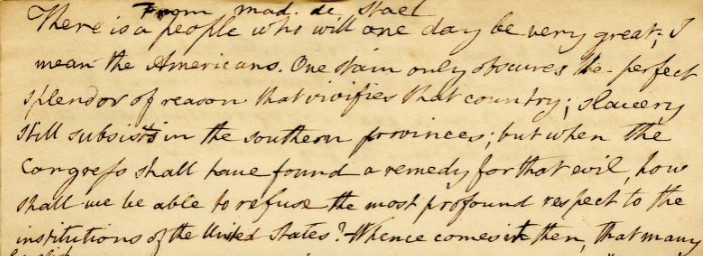 From mad. de Stael
There is a people who will one day be very great; I
mean the Americans. One stain only obscures the perfect
splendor of reason that vivifies that country; slavery
still subsists in the southern provinces; but when the
Congress shall have found a remedy for that evil, how
shall we be able to refuse the most profound respect to the
institutions of the United States? Whence comes it then, that many